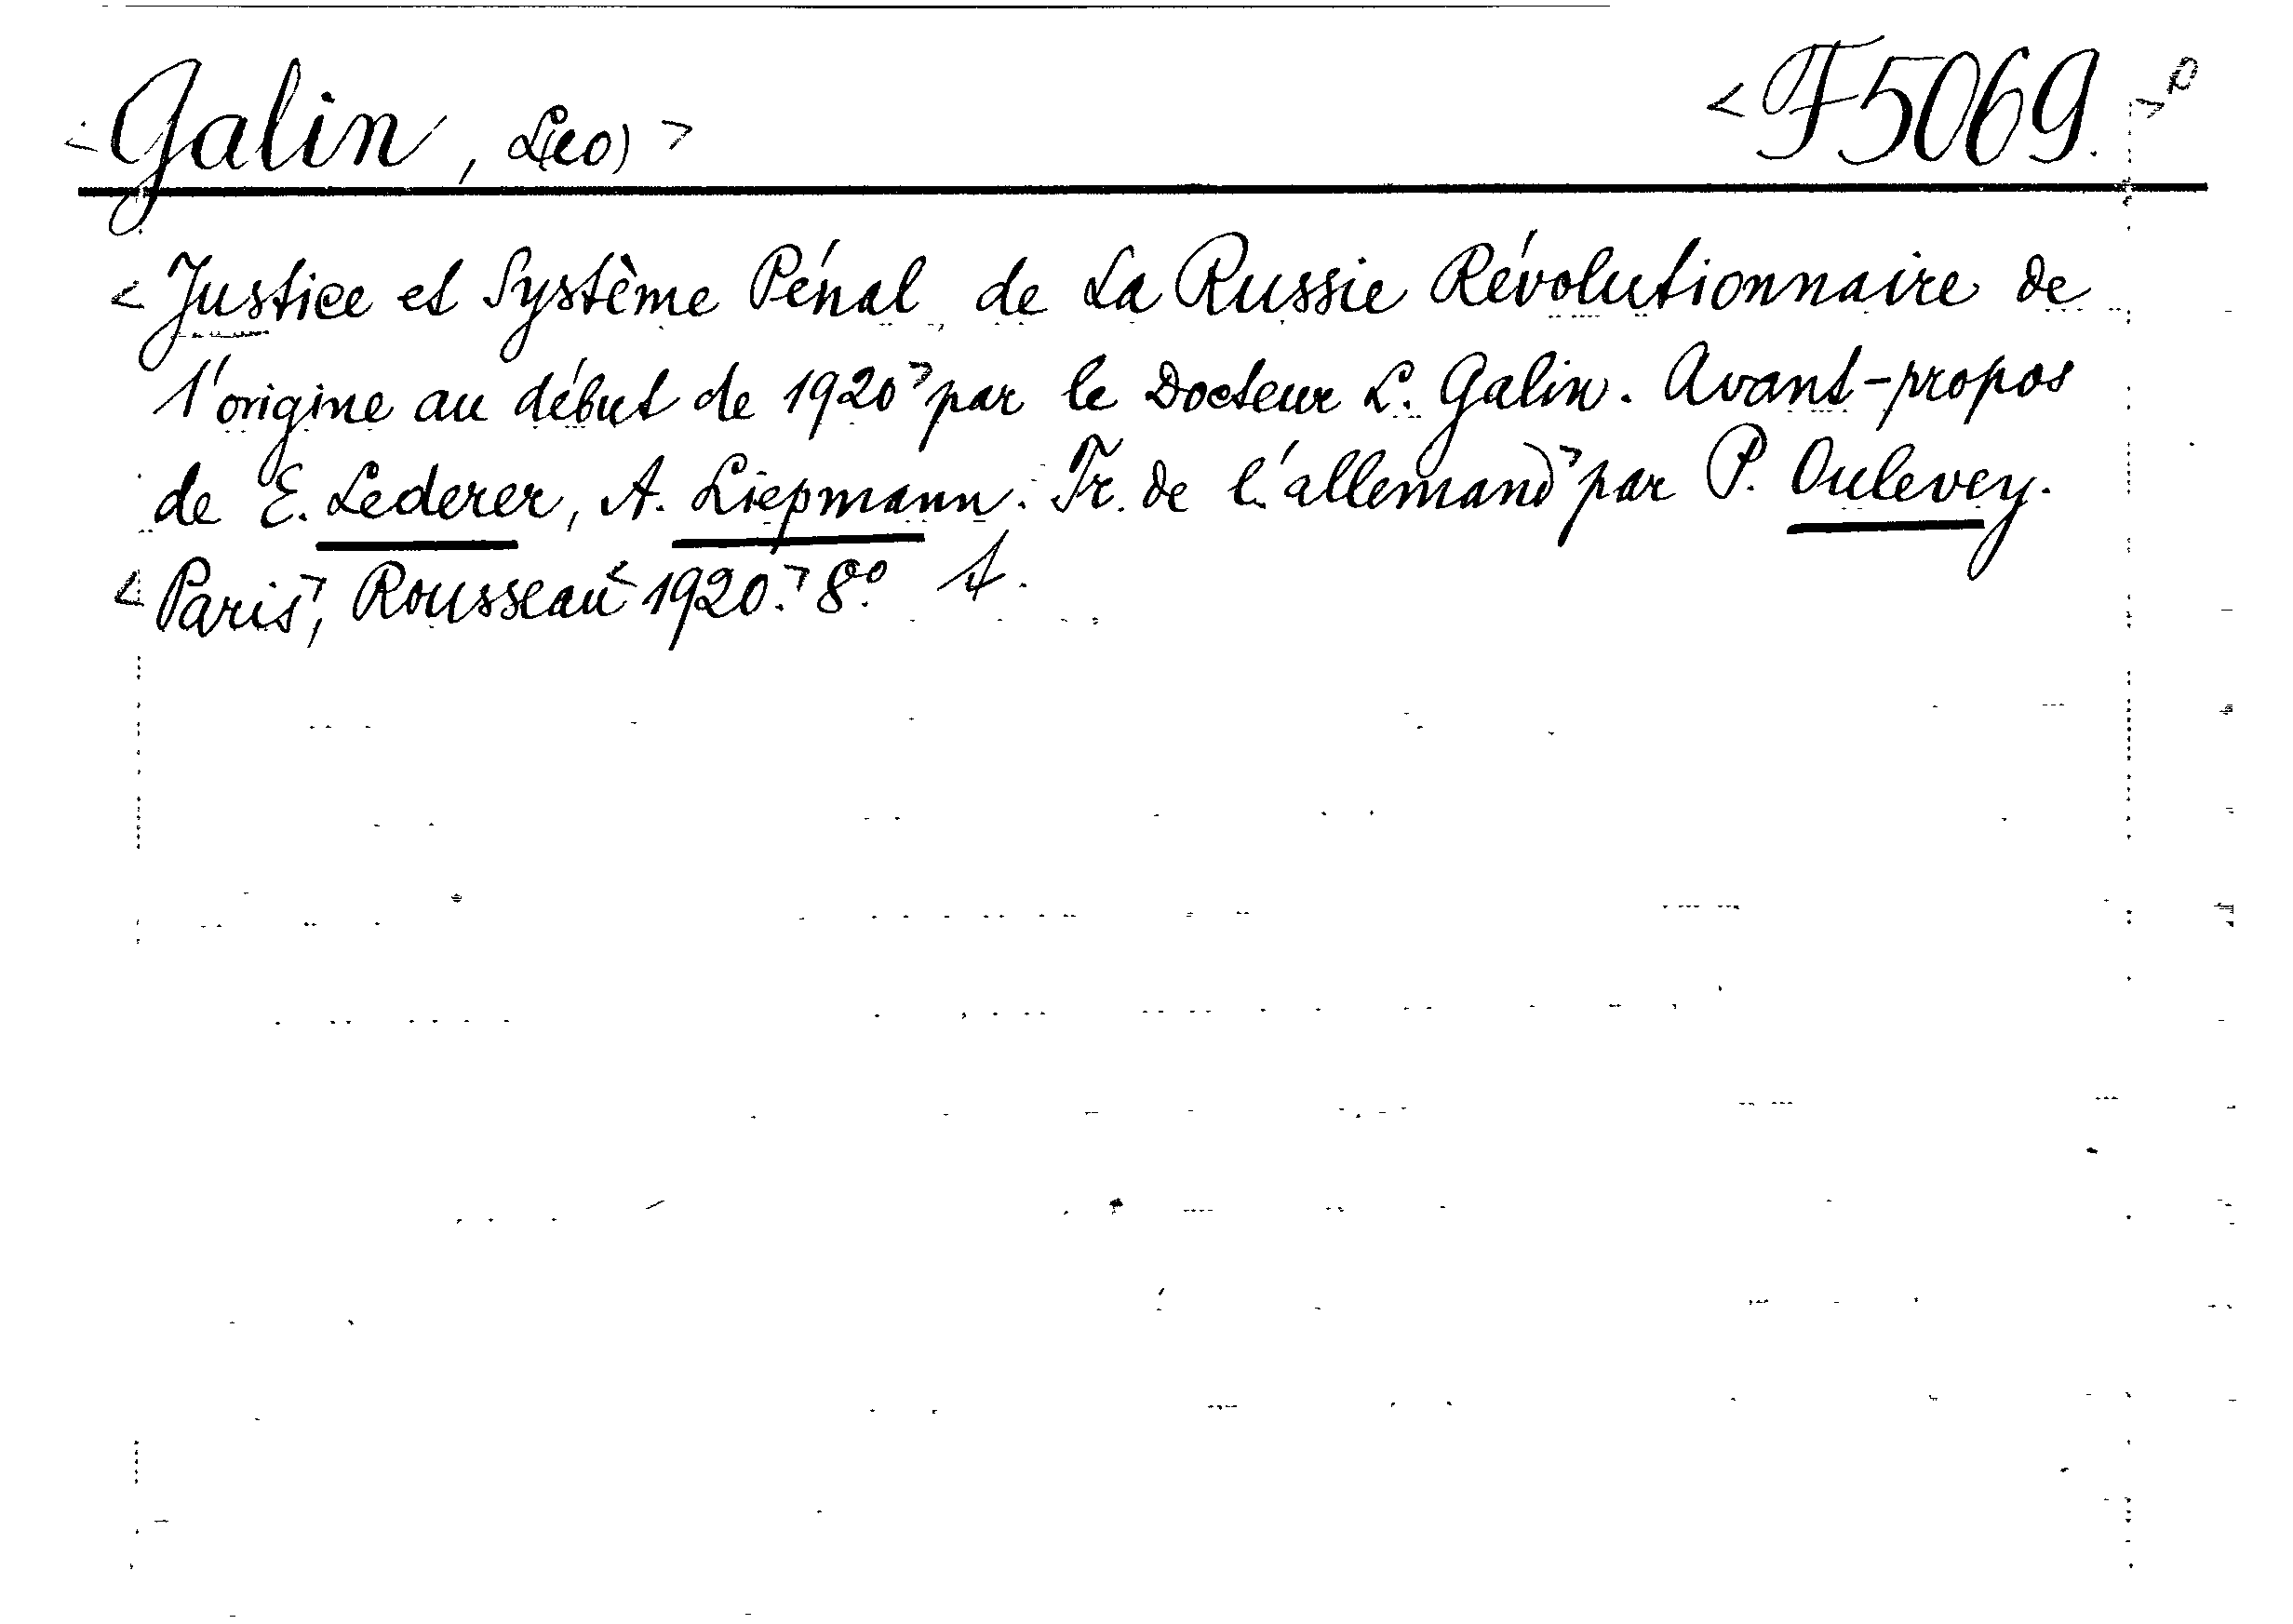 <Galin, L(eo)> <F5069.> p
<Justice et Système Pénal de La Russie Révolutionnaire de
l'origine au début de 1920> par le Docteur L. Galin. Avant-propos
de E. Lederer, A. Liepmann. Tr. de l'allemand> par P. Oulevey.
<Paris>, Rousseau <1920.> 8º